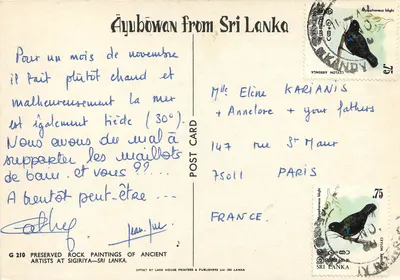 Āyubōwan from Sri Lanka
Pour un mois de novembre
il fait plutôt chaud et
malheureusement la mer
est également tiède (30°).
Nous avons du mal à
supporter les maillots
de bain. et vous ??...
A bientôt peut-être...
Cathy Jean-Luc
G 210 PRESERVED ROCK PAINTINGS OF ANCIENT
ARTISTS AT SIGIRIYA—SRI LANKA.
OFFSET BY LAKE HOUSE PRINTERS & PUBLISHERS LTD SRI LANKA
POST CARD
Mlle Eline KARIANIS
+ Annelore + your fathers
147 rue St Maur
75011 PARIS
FRANCE.
KANDY
.75
.75
SRI LANKA